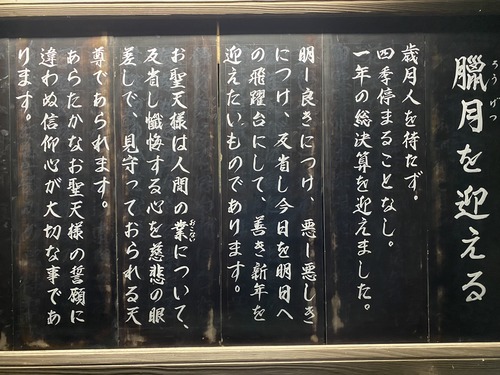 臘月を迎える
ろうげつ
歳月人を待たず。
四季停まることなし。
一年の総決算を迎えました。
明し良きにつけ、悪し悪しき
につけ、反省し今日を明日へ
の飛躍台にして、善き新年を
迎えたいものであります。
お聖天様は人間の業について、
おこない
反省し懺悔する心を慈悲の眼
差しで、見守っておられる天
尊であられます。
あらたかなお聖天様の誓願に
違わぬ信仰心が大切な事であ
ります。